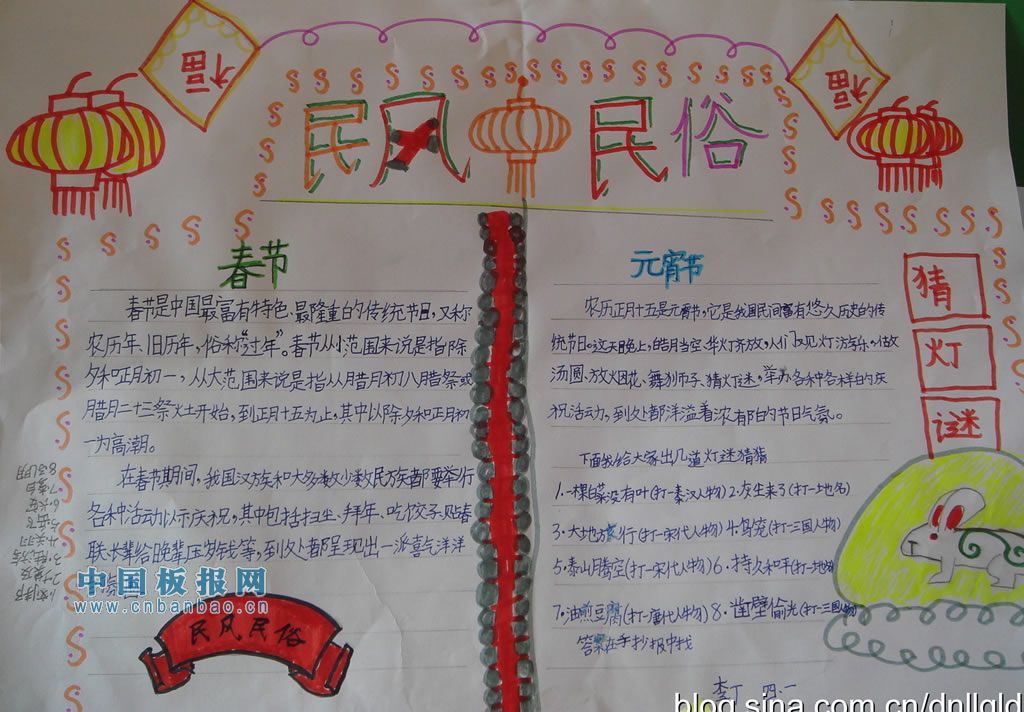 福
福
民风民俗
春节
春节是中国最富有特色、最隆重的传统节日,又称
农历年、旧历年,俗称"过年"。春节从小范围来说是指除
夕和正月初一,从大范围来说是指从腊月初八腊祭或
腊月二十三祭灶开始,到正月十五为止,其中以除夕和正月初
一为高潮。
在春节期间,我国汉族和大多数少数民族都要举行
各种活动以示庆祝,其中包括扫尘、拜年、吃饺子、贴春
联、长辈给晚辈压岁钱等,到处都呈现出一派喜气洋洋
中国板报网
www.cnbanbao.cn
民风民俗
元宵节
农历正月十五是元宵节,它是我国民间富有悠久历史的传
统节日。这天晚上,皓月当空,华灯齐放,人们观灯游乐、做
汤圆、放烟花、舞狮子、猜灯谜,举办各种各样的庆
祝活动,到处都洋溢着浓郁的节日气氛。
下面我给大家出几道灯谜猜猜
1.一棵白菜没有叶(打一秦汉人物) 2.灰尘来了(打一地名)
3.大地旅行(打一宋代人物) 4.鸟窝(打一三国人物)
5.泰山腾空(打一宋代人物) 6.持久和平(打一地名)
7.油煎豆腐(打一唐代人物) 8.凿壁偷光(打一三国人物)
答案在手抄报中找
李丁 四、一
猜
灯
谜
8.孔明
blog.sina.com.cn/dnllgld